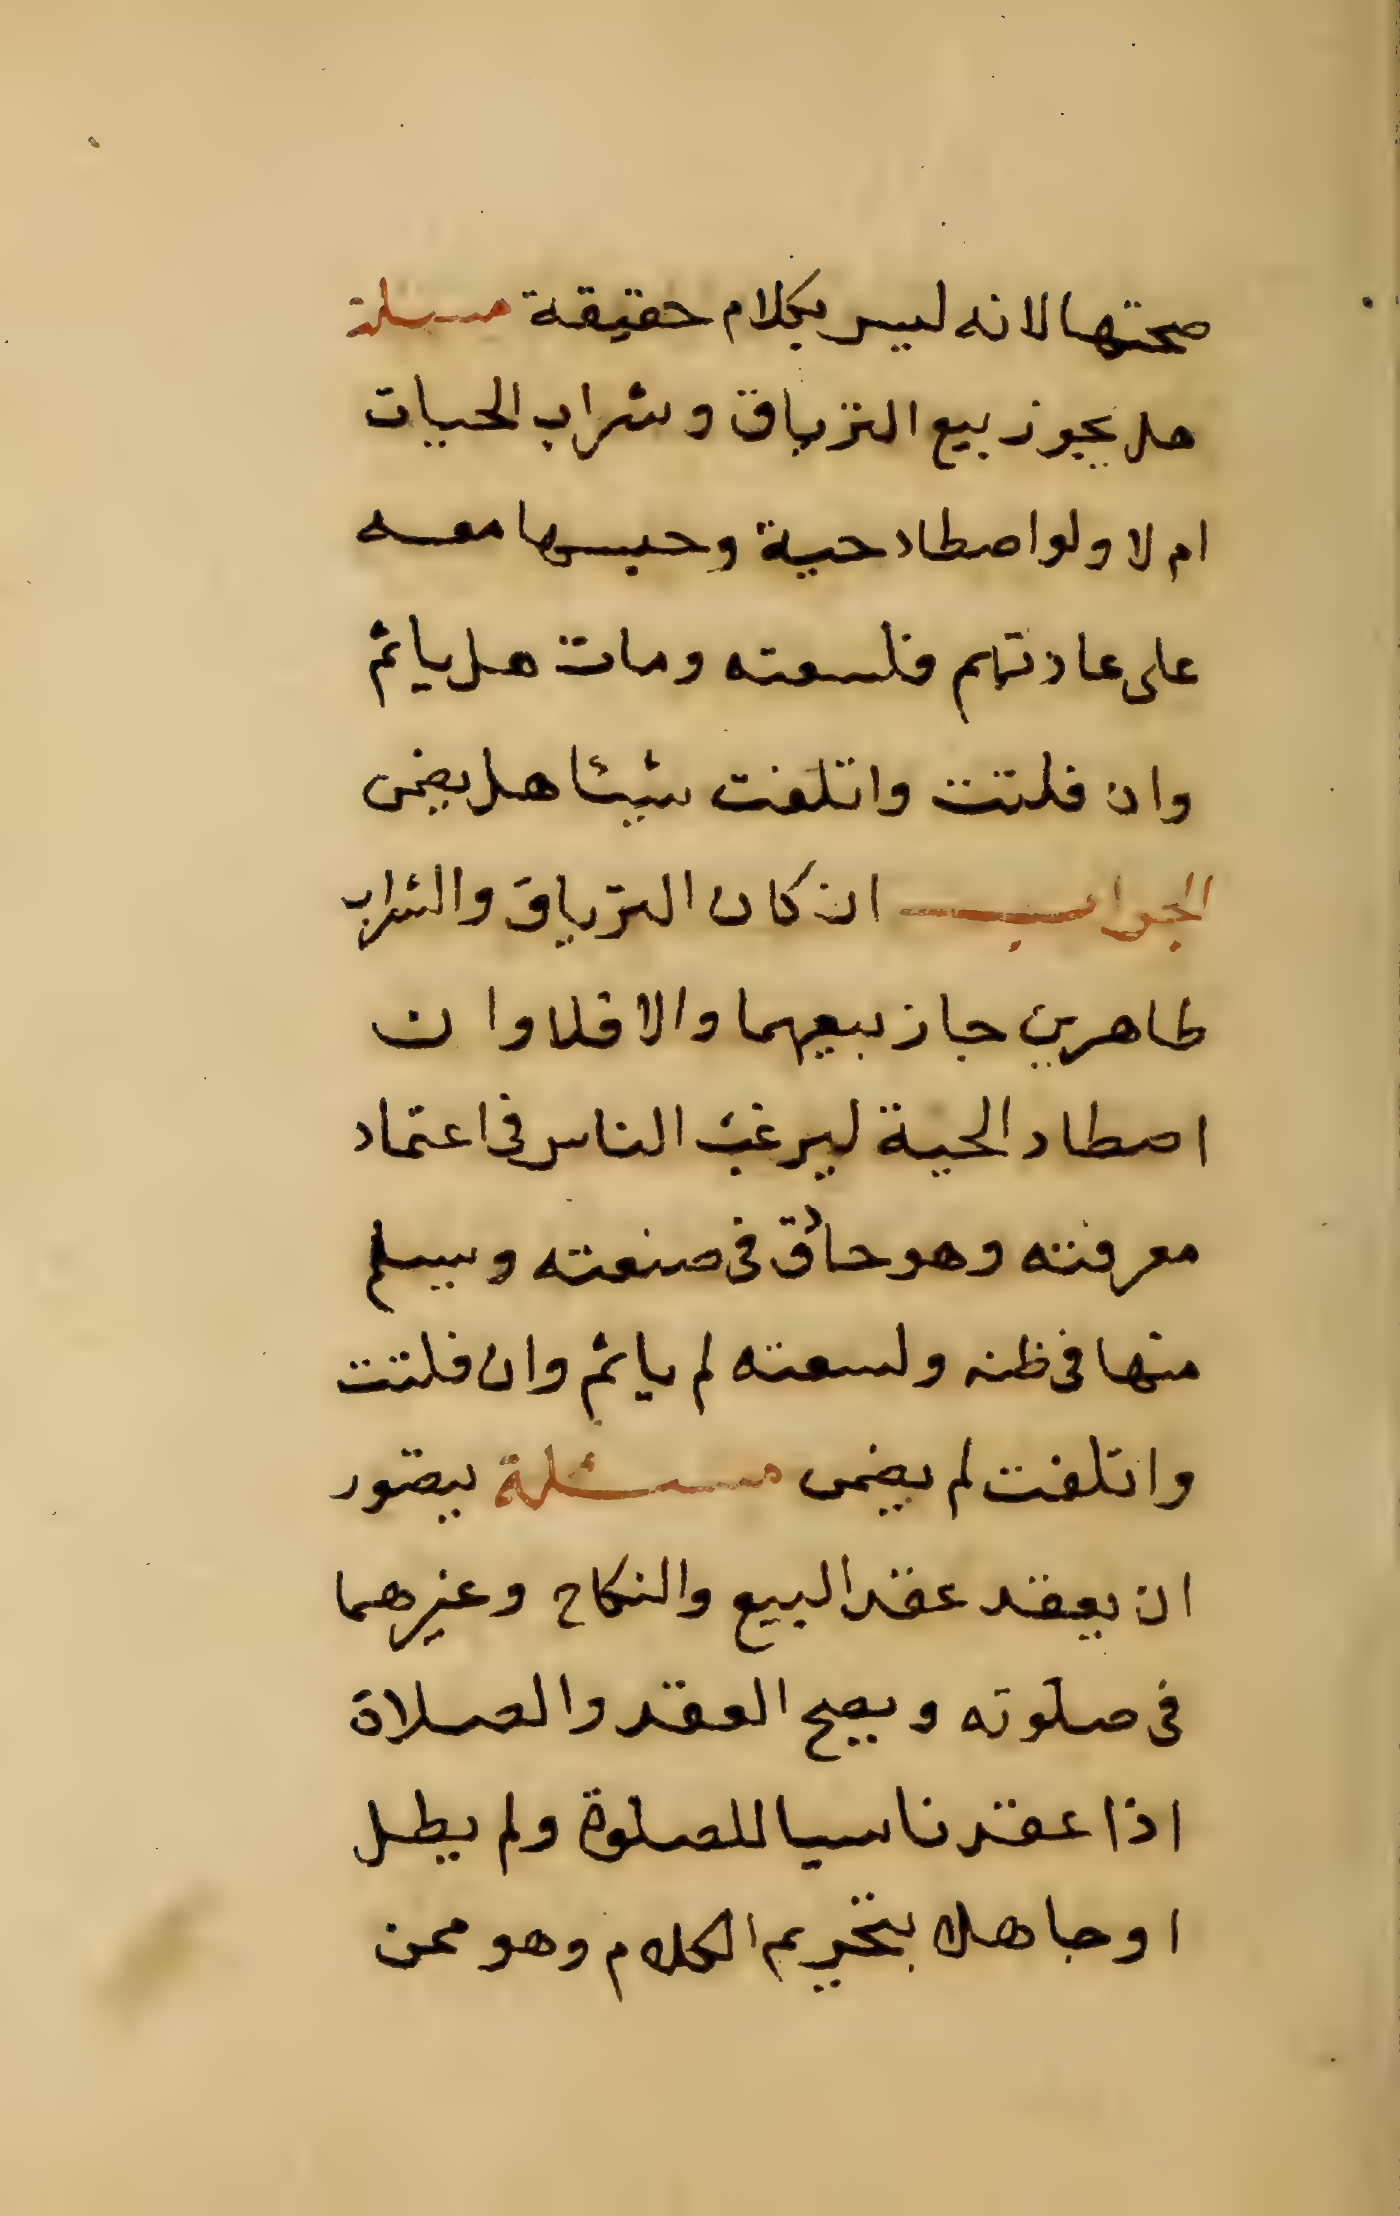 صحتها لانه ليس بكلام حقيقة مسئلة
هل يجوز بيع الترياق وشراب الحيات
ام لا ولو اصطاد حية وحبسها معه
على عادتهم فلسعته ومات هل ياثم
وان فلتت واتلفت شيئا هل يضمن
الجواب ان كان الترياق والشراب
طاهرين جاز بيعهما والا فلا وان
اصطاد الحية ليرغب الناس فى اعتماد
معرفته وهو حاذق فى صنعته ويسلم
منها فى ظنه ولسعته لم ياثم وان فلتت
واتلفت لم يضمن مسئلة يتصور
ان يعقد عقد البيع والنكاح وغيرهما
فى صلوته ويصح العقد والصلاة
اذا عقد ناسيا للصلوة ولم يطل
او جاهلا بتحريم الكلام وهو ممن